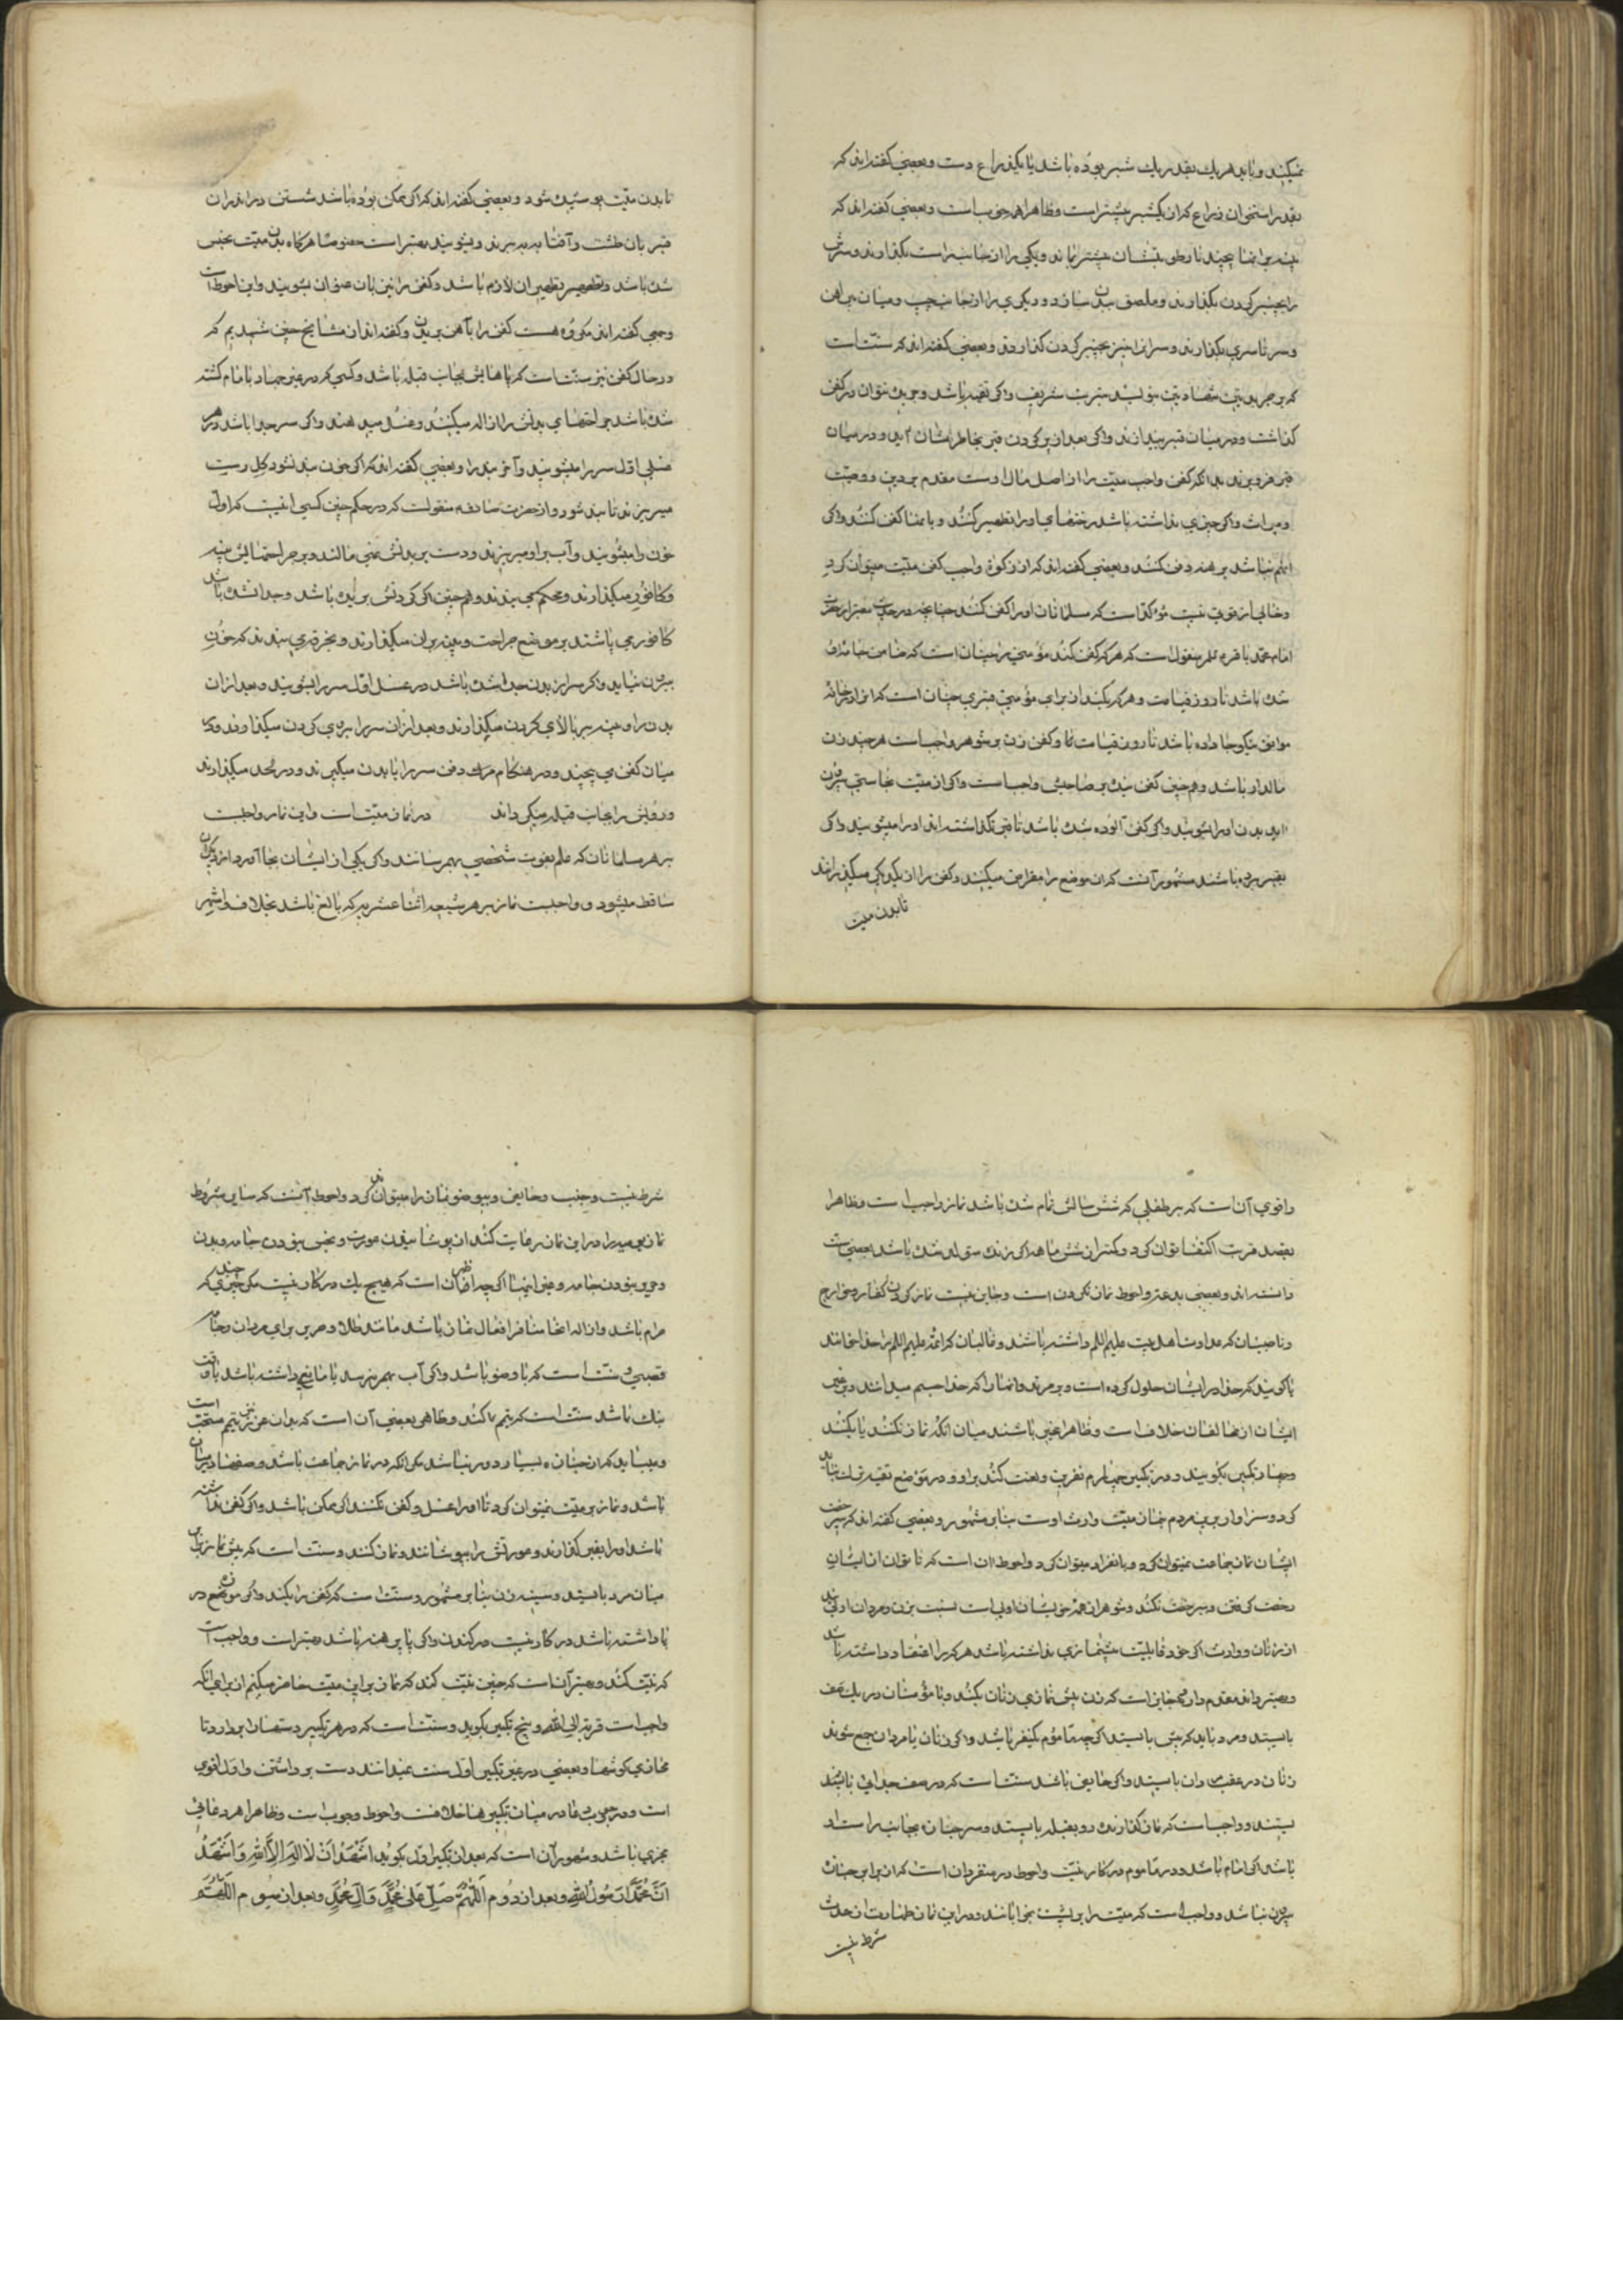 میکنند و باید هر یک بقدر یک شبر بوده باشد یا یکذراع دست و بعضی گفته‌اند که
بقدر استخوان ذراع که از یکشبر بیشتر است و ظاهرا همه خوب است و بعضی گفته‌اند که
پنبه بر اینها بپیچند تا رطوبتشان بیشتر بماند و یکی را از جانب راست بگذارند و سرش
را بچنبر گردن بگذارند و ملصق ببدن سازند و دیگری را از جانب چپ و میان پیراهن
و سرتاسری بگذارند و سر آنرا نیز بچنبر گردن گذارند و بعضی گفته‌اند که سنت است
که بر جریدتین شهادتین بنویسند بتربت شریف و اگر تقیه باشد و جریده نتوان در کفن
گذاشت در میان قبر بیندازند و اگر بعد از پر کردن قبر بخاطرشان آید و در میان
قبر فرو برند بدانکه کفن واجب میت را از اصل مال اوست مقدم بر دین و وصیت
و میراث و اگر چیزی نداشته باشد رختهای او را تطهیر کنند و بآنها کفن کنند و اگر
آنهم نباشد برهنه دفن کنند و بعضی گفته‌اند که از زکوة واجب کفن میت میتوان کرد
و خالی از قوت نیست مؤکدا است که مسلمانان او را کفن کنند چنانچه در حدیث معتبر از حضرت
امام محمد باقر ع منقول است که هر که کفن کند مؤمنی را چنان است که ضامن جامه او
شده باشد تا روز قیامت و هر که بکند از برای مؤمنی قبری چنان است که او را در خانه
موافق نیکو جا داده باشد تا روز قیامت و کفن زن بر شوهر واجب است هر چند زن
مالدار باشد و همچنین کفن بنده بر صاحبش واجب است و اگر از میت نجاستی بیرون
آید بدن او را بشویند و اگر کفن آلوده شده باشد تا بقبر نگذاشته‌اند او را میشویند و اگر
بقبر برده باشند مشهور آنست که آن موضع را مقراض میکنند و کفن را از یکدیگر میگذرانند
تا بدن میت
تا بدن میت پوشیده شود و بعضی گفته‌اند که اگر ممکن بوده باشد شستن در اندرون
قبر بآن طشت و آفتابه ببرند و بشویند بهتر است خصوصا هرگاه بدن میت نجس
شده باشد و تطهیر آن لازم باشد و کفن را نیز بآن عنوان بشویند و این احوط است
و جمعی گفته‌اند مکروه هست کفن را بآهن بریدن و گفته‌اند از مشایخ چنین شنیدیم که
در حال کفن نیز سنت است که پاهایش بجانب قبله باشد و کسی که در غیر جهاد با امام کشته
شده باشد جراحتهای بدنش را ازاله میکنند و غسل میدهند و اگر سر جدا باشد در هر
غسلی اول سر را میشویند و آخر بدن را و بعضی گفته‌اند که اگر خون بند نشود گل ریست
میریزند تا بند شود و از حضرت صادق ع منقولست که در حکم چنین کسی اینست که اول
خون را میشویند و آب بر او میریزند و دست بر بدنش نمی مالند و بر جراحتهایش پنبه
و کافور میگذارند و محکم می بندند و همچنین اگر گردنش بریده باشد و جدا شده باشد
کافور می پاشند بر موضع جراحت و پنبه بر آن میگذارند و بخرقه می بندند که خون
بیرون نیاید و اگر سر از بدن جدا شده باشد در غسل اول سر را بشویند و بعد از آن
بدن را و پنبه بر بالای گردن میگذارند و بعد از آن سر را بر روی گردن میگذارند و در
میان کفن می پیچند و در هنگام دفن سر را با بدن میگیرند و در لحد میگذارند
و رویش را بجانب قبله میگردانند در نماز میت است و این نماز واجبست
بر هر مسلمانان که علم بفوت شخصی بهمرسانند و اگر یکی از ایشان بجا آورد از دیگران
ساقط میشود و واجبست نماز بر هر شیعه اثنا عشریه که بالغ باشد بخلاف و اشهر
و اقوی آن است که بر طفلی که شش سالش تمام شده باشد نماز واجب است و ظاهرا
بقصد قربت اکتفا توان کرد و کمتر از شش ماهه اگر زنده متولد شده باشد بعضی سنت
دانسته‌اند و بعضی بدعت و احوط نماز نکردن است و جایز نیست نماز کردن کفار و خوارج
و ناصبیان که عداوت اهلبیت علیهم السلم داشته باشند و غالیان که ائمه علیهم السلم را خدا خوانند
یا گویند که خدا در ایشان حلول کرده است و بر مرتد و آنها را که خدا جسم میدانند و بر غیر
ایشان از مخالفان خلاف است و ظاهرا مخیر باشند میان آنکه نماز نکنند یا بکنند
و چهار تکبیر بگویند و در تکبیر چهارم نفرین و لعنت کنند بر او و در موضع تقیه ترک نباید
کرد و سزاوارترین مردم بنماز میت وارث اوست بنا بر مشهور و بعضی گفته‌اند که بی رخصت
ایشان نماز بجماعت نمیتوان کرد و بانفراد میتوان کرد و احوط آن است که تا توان از ایشان
رخصت گرفتن بی رخصت نکنند و شوهر از همه خویشان اولی است نسبت بزن و مردان اولی‌اند
از زنان و وارث اگر خود قابلیت پیشنمازی نداشته باشد هر که را اعتقاد داشته باشد
و بهتر داند مقدم دارد جایز است که زن پیش نمازی زنان بکند و با مؤمنان در یک صف
بایستد و مرد باید که پیش بایستد اگر چه مأموم یکنفر باشد و اگر زنان با مردان جمع شوند
زنان در عقب مردان بایستند و اگر حایض باشد سنت است که در صف جدائی
بایستند و واجب است که نماز گذارنده رو بقبله بایستد و سر جنازه بجانب راست او
باشد اگر امام باشد و در مأموم در کار نیست و احوط در منفرد آن است که از برابر جنازه
بیرون نباشد و واجب است که میت را بر پشت بخوابانند و در این نماز طهارت از حدث
شرط نیست
شرط نیست و جنب و حایض و بیوضو نماز را میتوانند کرد و احوط آنست که سایر شروط
نماز یومیه را در این نماز رعایت کنند از پوشانیدن عورت و نجس نبودن جامه و بدن
و حریر نبودن جامه و غیر اینها اگر چه اظهر آن است که هیچ یک در کار نیست مگر چیزی چند که
حرام باشد و ازاله آنها منافی افعال نماز باشد مانند طلا و حریر برای مردان و جامه
غصبی و سنت است که با وضو باشد و اگر آب بهم نرسد یا مانعی داشته باشد یا وقت
تنک باشد سنت است که تیمم کنند و ظاهر بعضی آن است که بدون عذر نیز تیمم مستحب است
و میباید که از جنازه بسیار دور نباشد مگر آنکه در نماز جماعت باشد و صفها در میان
باشد و نماز بر میت نمیتوان کرد تا او را غسل و کفن نکنند اگر ممکن باشد و اگر کفن نداشته
باشد او را بقبر گذارند و عورتش را بپوشانند و نماز کنند و سنت است که پیش نماز برابر
میان مرد بایستد و سینه زن بنا بر مشهور و سنت است که کفش را بکند و اگر موزه در
پا داشته باشد در کار نیست در کندن و اگر پا برهنه باشد بهتر است و واجب است
که نیت کنند و بهتر آن است که چنین نیت کند که نماز بر این میت حاضر میکنم از برای آنکه
واجب است قربة الی الله و پنج تکبیر بگوید و سنت است که در هر تکبیر دستها را بردارد تا
محاذی گوشها و بعضی در غیر تکبیر اول سنت نمیدانند دست برداشتن و اول اقوی
است و در وجوب دعا در میان تکبیرها خلافست و احوط وجوب است و ظاهرا هر دعائی
مجزی باشد و مشهور آن است که بعد از تکبیر اول بگوید اَشْهَدُ اَنْ لا اِلهَ اِلاَّ اللهُ وَ اَشْهَدُ
اَنَّ مُحَمَّدًا رَسُولُ اللهِ و بعد از دوم اَللّهُمَّ صَلِّ عَلی مُحَمَّدٍ وَ آلِ مُحَمَّدٍ و بعد از سیوم اَللّهُمَّ